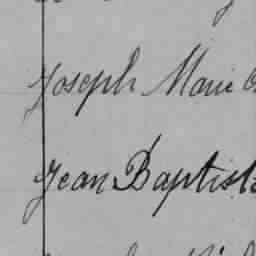 Joseph Marie
Jean Baptist